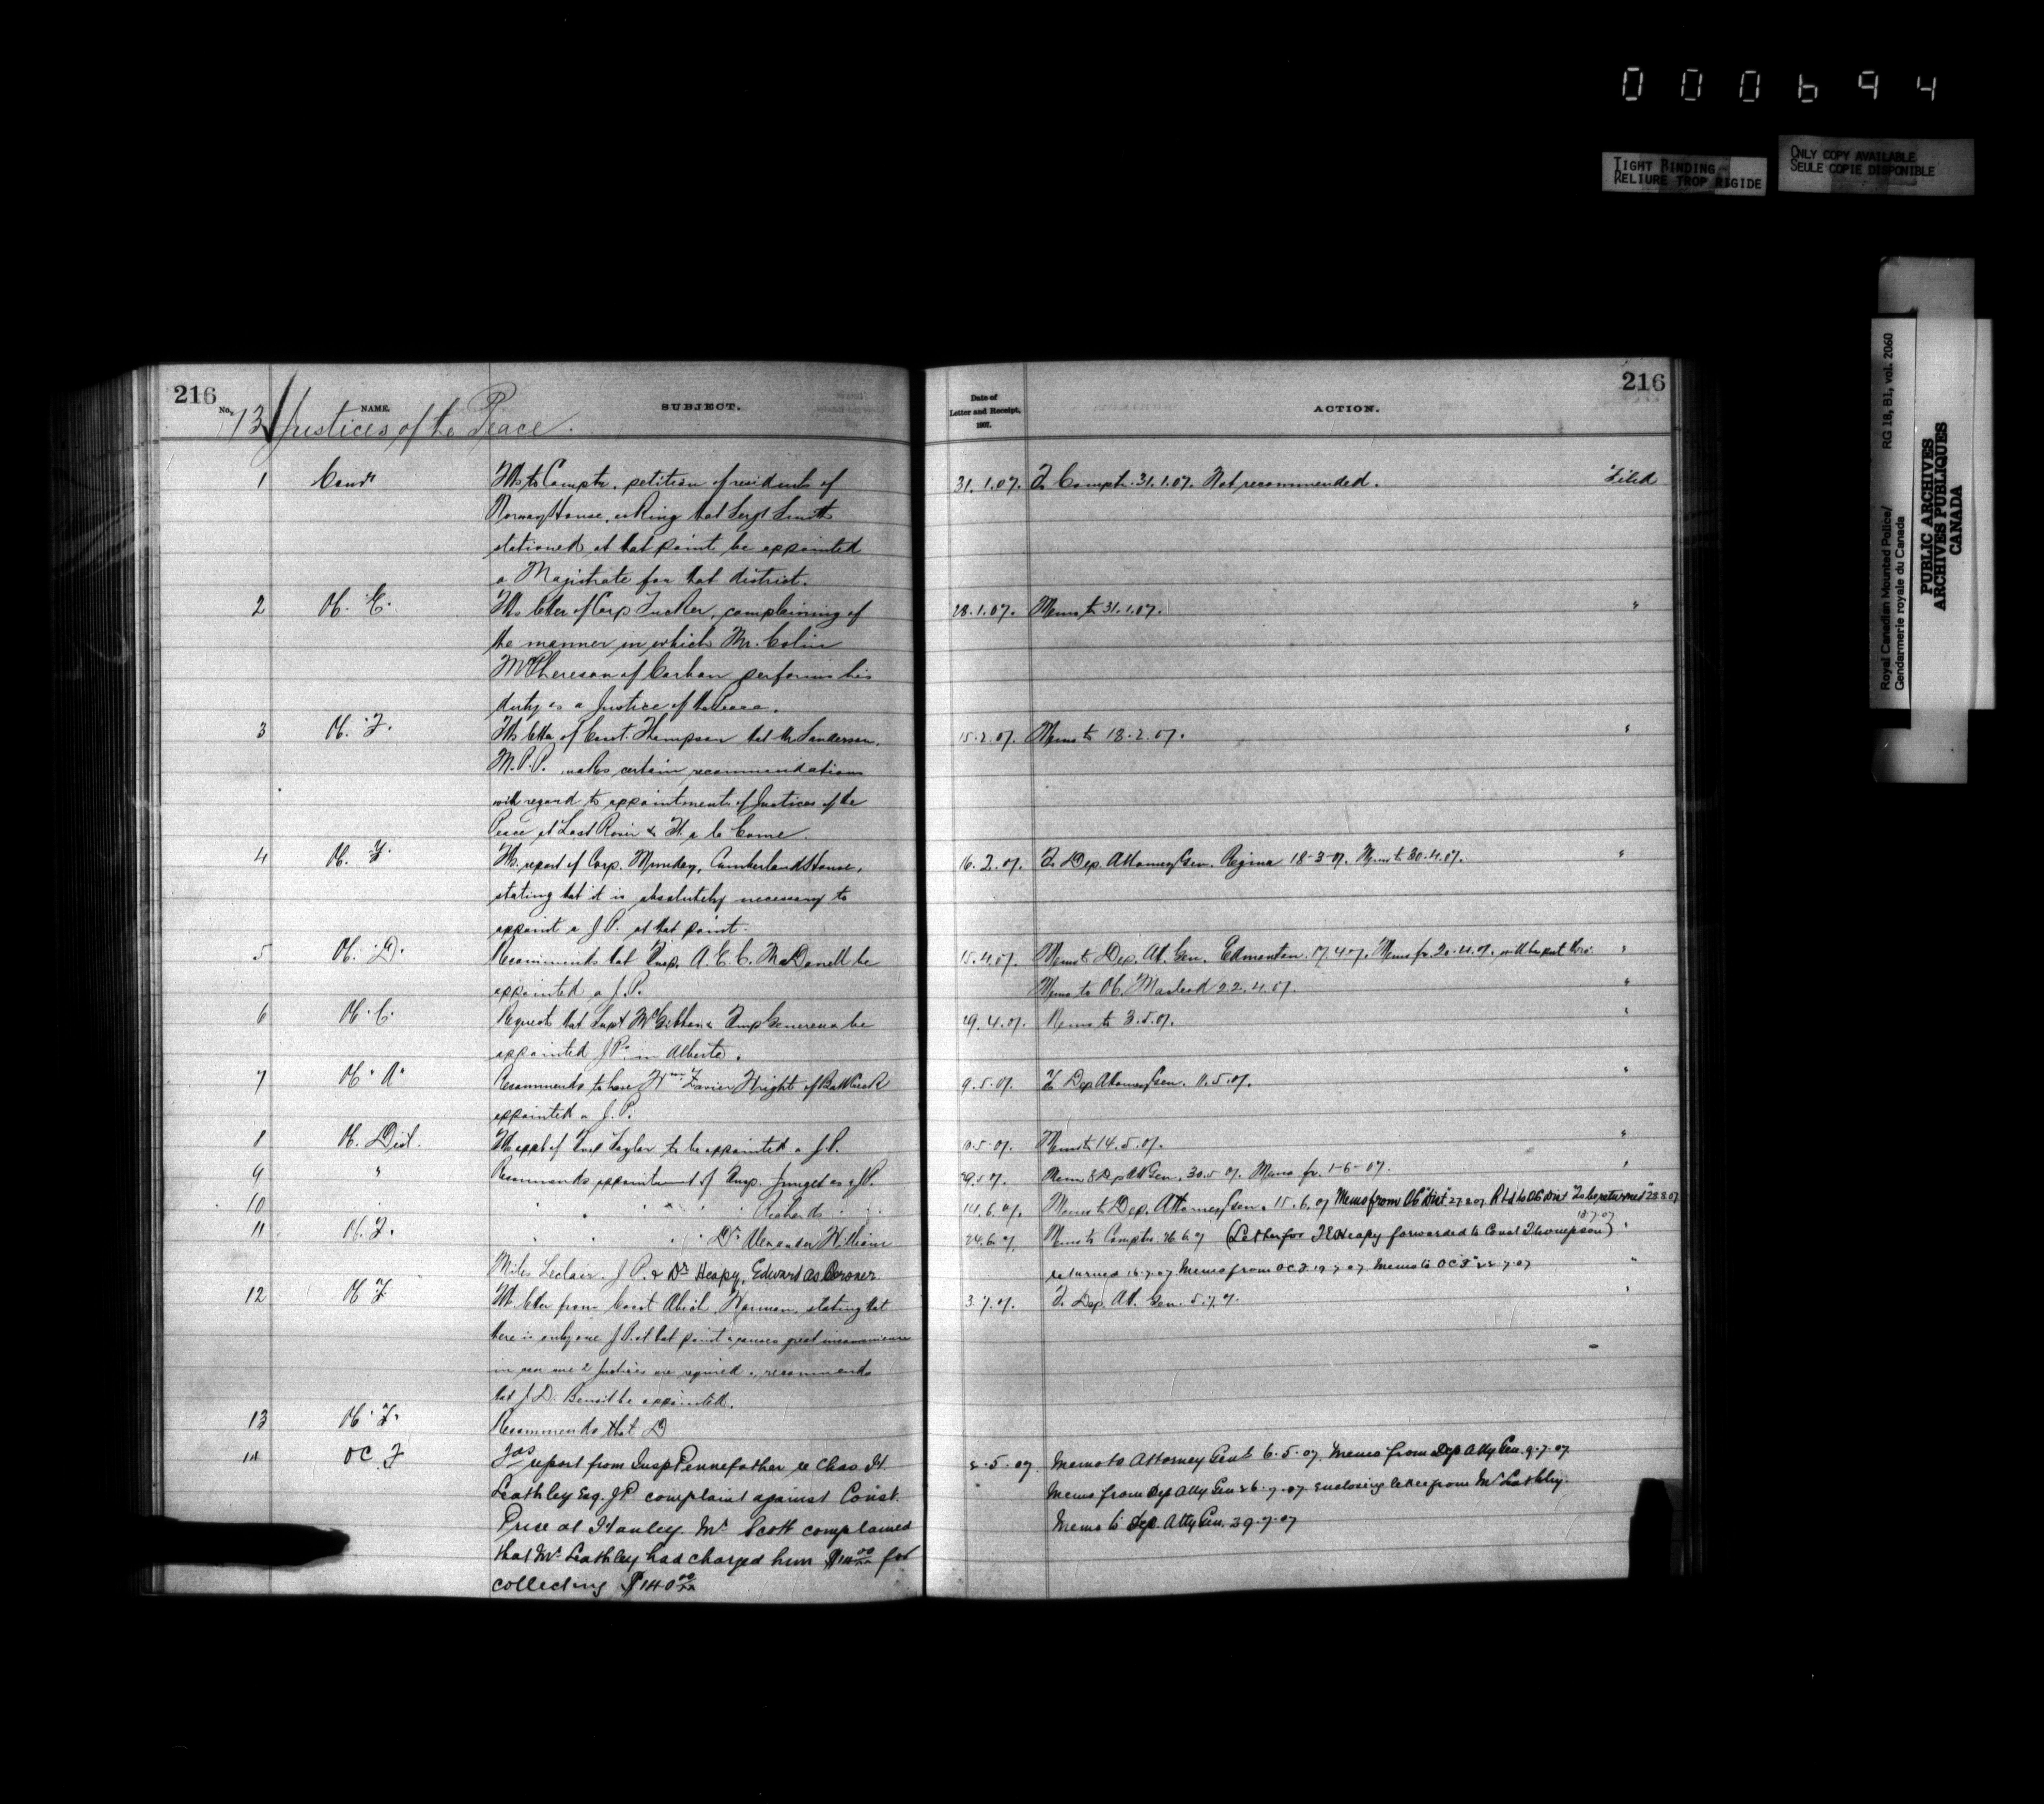 000694
TIGHT BINDING
RELIURE TROP RIGIDE
ONLY COPY AVAILABLE
SEULE COPIE DISPONIBLE
Royal Canadian Mounted Police/
Gendarmerie royale du Canada
RG 18, B1, vol. 2060
PUBLIC ARCHIVES
ARCHIVES PUBLIQUES
CANADA
216
No. NAME. SUBJECT.
Date of Letter and Receipt, 1907. ACTION.
216
13 Justices of the Peace.
1 Comr petition of residents of 31.1.07. To Comptr. 31.1.07. Not recommended. Filed
Norway House, asking that Sergt Smith
stationed at that point be appointed
a Magistrate for that district.
2 O.C. "E" letter of Corp Tucker, complaining of 28.1.07. Memo to 31.1.07. "
the manner in which Mr. Colin
McPherson of Carbon performs his
duty as a Justice of the Peace.
3 O.C. "F" letter of Const. Thompson that Mr Sanderson, 15.2.07. Memo to 18.2.07. "
M.P.P. makes certain recommendations
with regard to appointment of Justices of the
Peace at
4 O.C. "F" report of Corp. Munday, Cumberland House, 16.2.07. To Dep. Attorney Gen. Regina 18-3-07. Memo to 30.4.07. "
stating that it is absolutely necessary to
appoint a J.P. at that point.
5 O.C. "D" Recommends that Insp. A.E.C. McDonell be 15.4.07. Memo to Dep. At. Gen. Edmonton 17.4.07. Memo fr. 20.4.07. will be put thro' "
appointed a J.P. Memo to OC. Macleod 22.4.07. "
6 O.C. Requests that Supt McGibbon & Insp Genereux be 29.4.07. Memo to 3.5.07. "
appointed J.P's in Alberta.
7 O.C. "A" Recommends to have Wright of appointed a J.P. 9.5.07. To Dep Attorney Gen. 11.5.07. "
8 O.C. Dist. Insp Taylor to be appointed a J.P. Memo to 14.5.07. "
9 " Recommends appointment of Insp. Junget as a J.P. 29.5.07. Memo to Dep At Gen. 30.5.07. Memo fr. 1-6-07. "
10 " " " Richards " " 14.6.07. Memo to Dep. Attorney Gen. 15.6.07 Memo from OC "Dist" 27.8.07 "To be returned" 28.8.07
11 O.C. "F" " " Dr. Alexander William 24.6.07. Memo to Comptr. 26.6.07 (Letter for Heapy forwarded to Const Thompson) 18.7.07 "
Miles Leclair. J.P. & Dr Heapy, Edward as Coroner. returned 16.7.07 Memo from OC F 19.7.07 Memo to OC "F" 22.7.07 "
12 O.C. "F" letter from Const stating that 3.7.07. To Dep. At. Gen. 5.7.07. "
there is only one J.P. at that point & causes great inconvenience
in case 2 Justices are required, recommends
that J.D. be appointed.
13 O.C. "F" Recommends that D
14 OC F report from Insp Pennefather re Chas. H. 2.5.07. Memo to Attorney Genl 6.5.07. Memo from Dep Atty Gen. 9.7.07
Leathley Esq. J.P. complaint against Const. Memo from Dep Atty Gen 26.7.07 enclosing letter from Mr Leathley.
Price at Hanley. Mr Scott complained Memo to Dep. Atty Gen. 29.7.07
that Mr Leathley had charged him $14.00 for
collecting $140.00